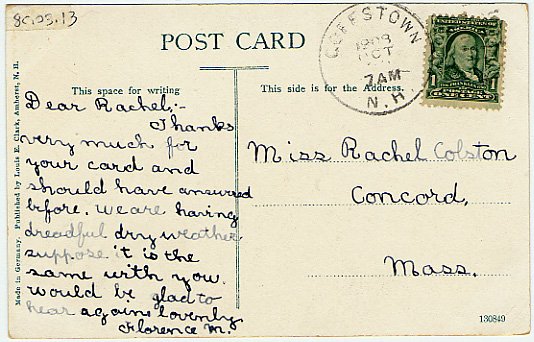 80.03.13
POST CARD
GOFFSTOWN
1908
OCT
7AM
N.H.
UNITED STATES OF AMERICA
FRANKLIN
1 1
This space for writing
This side is for the Address.
Dear Rachel:-
Thanks
very much for
your card and
should have answered
before. We are having
dreadful dry weather
suppose it is the
same with you.
Would be glad to
hear again. lovenly
Florence M.
Miss Rachel Colston
Concord,
Mass.
Made in Germany. Published by Louis E. Clark, Amherst, N. H.
130849